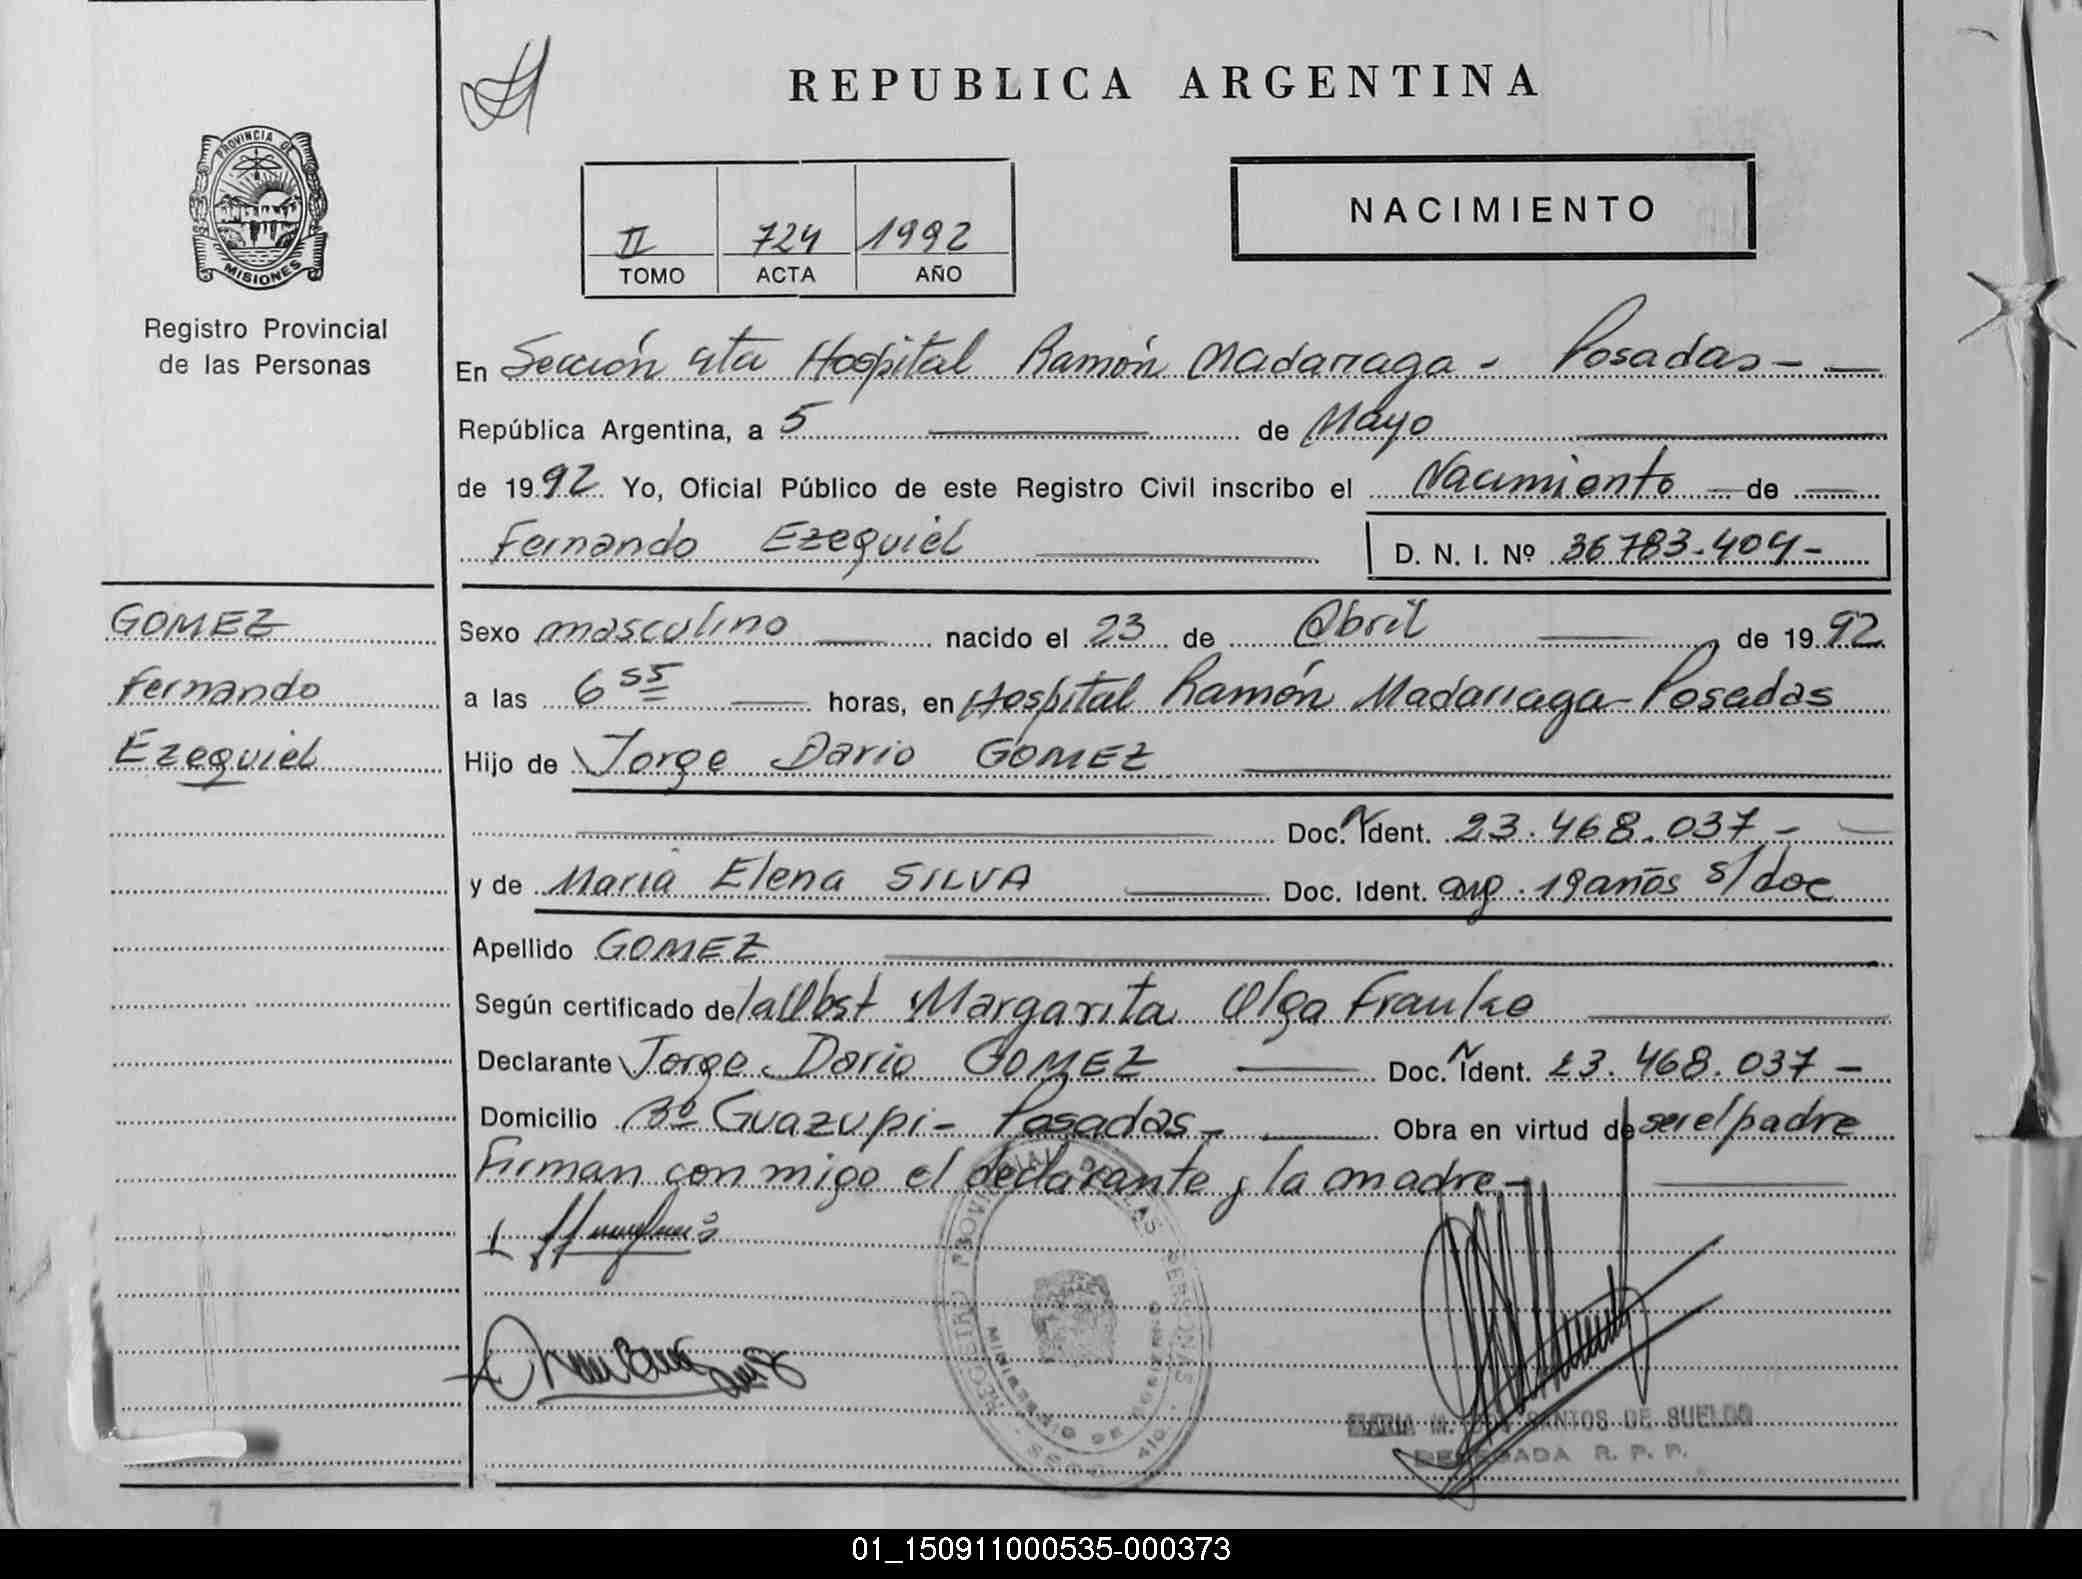 REPUBLICA ARGENTINA
PROVINCIA DE
MISIONES
Registro Provincial
de las Personas
II 724 1992
TOMO ACTA AÑO
NACIMIENTO
En Sección 4ta Hospital Ramón Madariaga - Posadas -
República Argentina, a 5 de Mayo
de 1992 Yo, Oficial Público de este Registro Civil inscribo el Nacimiento de
Fernando Ezequiel D. N. I. Nº 36783.404-
GOMEZ
Fernando
Ezequiel
Sexo masculino nacido el 23 de Abril de 1992
a las 6 55 horas, en Hospital Ramón Madariaga - Posadas
Hijo de Jorge Dario GOMEZ
Doc. Ident. 23.468.037-
y de Maria Elena SILVA Doc. Ident. arg. 19 años s/doc
Apellido GOMEZ
Según certificado de la Obst Margarita Olga Franke
Declarante Jorge Dario GOMEZ Doc. Ident. 23.468.037-
Domicilio Bº Guazupi - Posadas - Obra en virtud de ser el padre
Firman conmigo el declarante y la madre -
REGISTRO PROVINCIAL DE LAS PERSONAS
MINISTERIO DE GOBIERNO
MARIA M. SANTOS DE SUELDO
DELEGADA R. P. P.
01_150911000535-000373